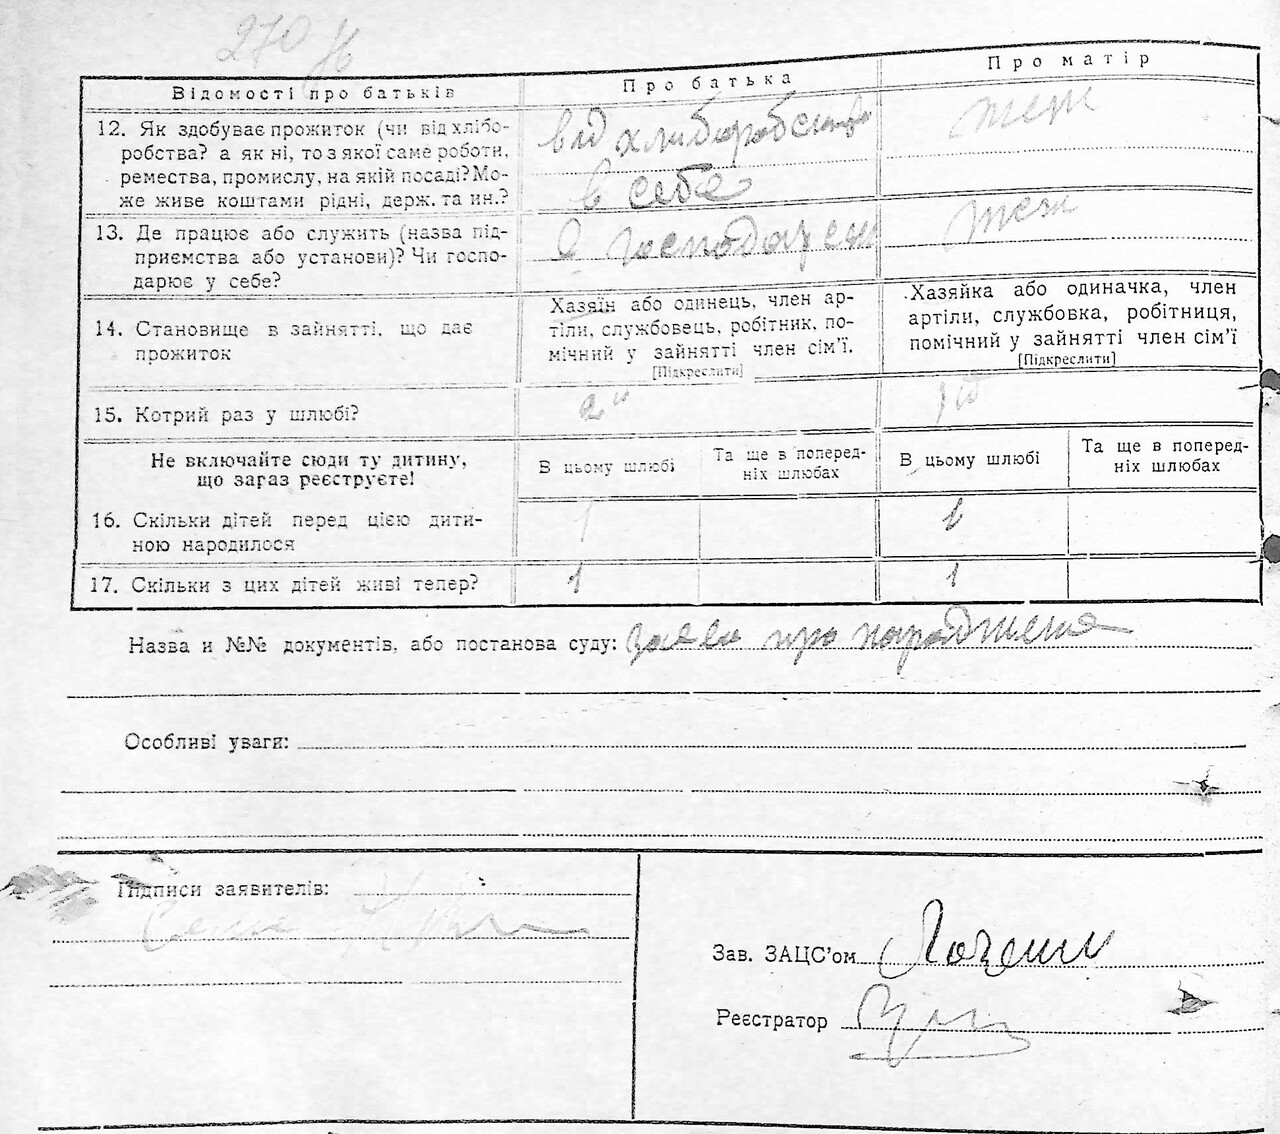 270
Відомості про батьків
Про батька
Про матір
12. Як здобуває прожиток (чи від хлібо-
робства? а як ні, то з якої саме роботи,
ремества, промислу, на якій посаді? Мо-
же живе коштами рідні, держ. та ин.?
від хліборобства
в себе
теж
13. Де працює або служить (назва під-
приємства або установи)? Чи госпо-
дарює у себе?
теж
14. Становище в зайнятті, що дає
прожиток
Хазяїн або одинець, член ар-
тіли, службовець, робітник, по-
мічний у зайнятті член сім’ї.
[Підкреслити]
Хазяйка або одиначка, член
артіли, службовка, робітниця,
помічний у зайнятті член сім’ї
[Підкреслити]
15. Котрий раз у шлюбі?
2й
1й
Не включайте сюди ту дитину,
що загаз реєструєте!
В цьому шлюбі
Та ще в поперед-
ніх шлюбах
В цьому шлюбі
Та ще в поперед-
ніх шлюбах
16. Скільки дітей перед цією дити-
ною народилося
1
1
17. Скільки з цих дітей живі тепер?
1
1
Назва и №№ документів, або постанова суду: заява про народження
Особливі уваги:
Підписи заявителів:
Зав. ЗАЦС’ом
Реєстратор